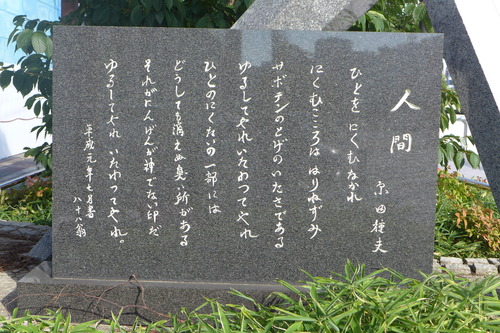 人間
京田桂夫
ひとを にくむなかれ
にくむこころは はりねずみ
サボテンのとげの いたさである
ゆるしてやれ いたわってやれ
ひとのにくたいの 一部には
どうしても消えぬ臭い所がある
それがにんげんが神でない印だ
ゆるしてやれ いたわってやれ。
平成元年七月書
八十八翁